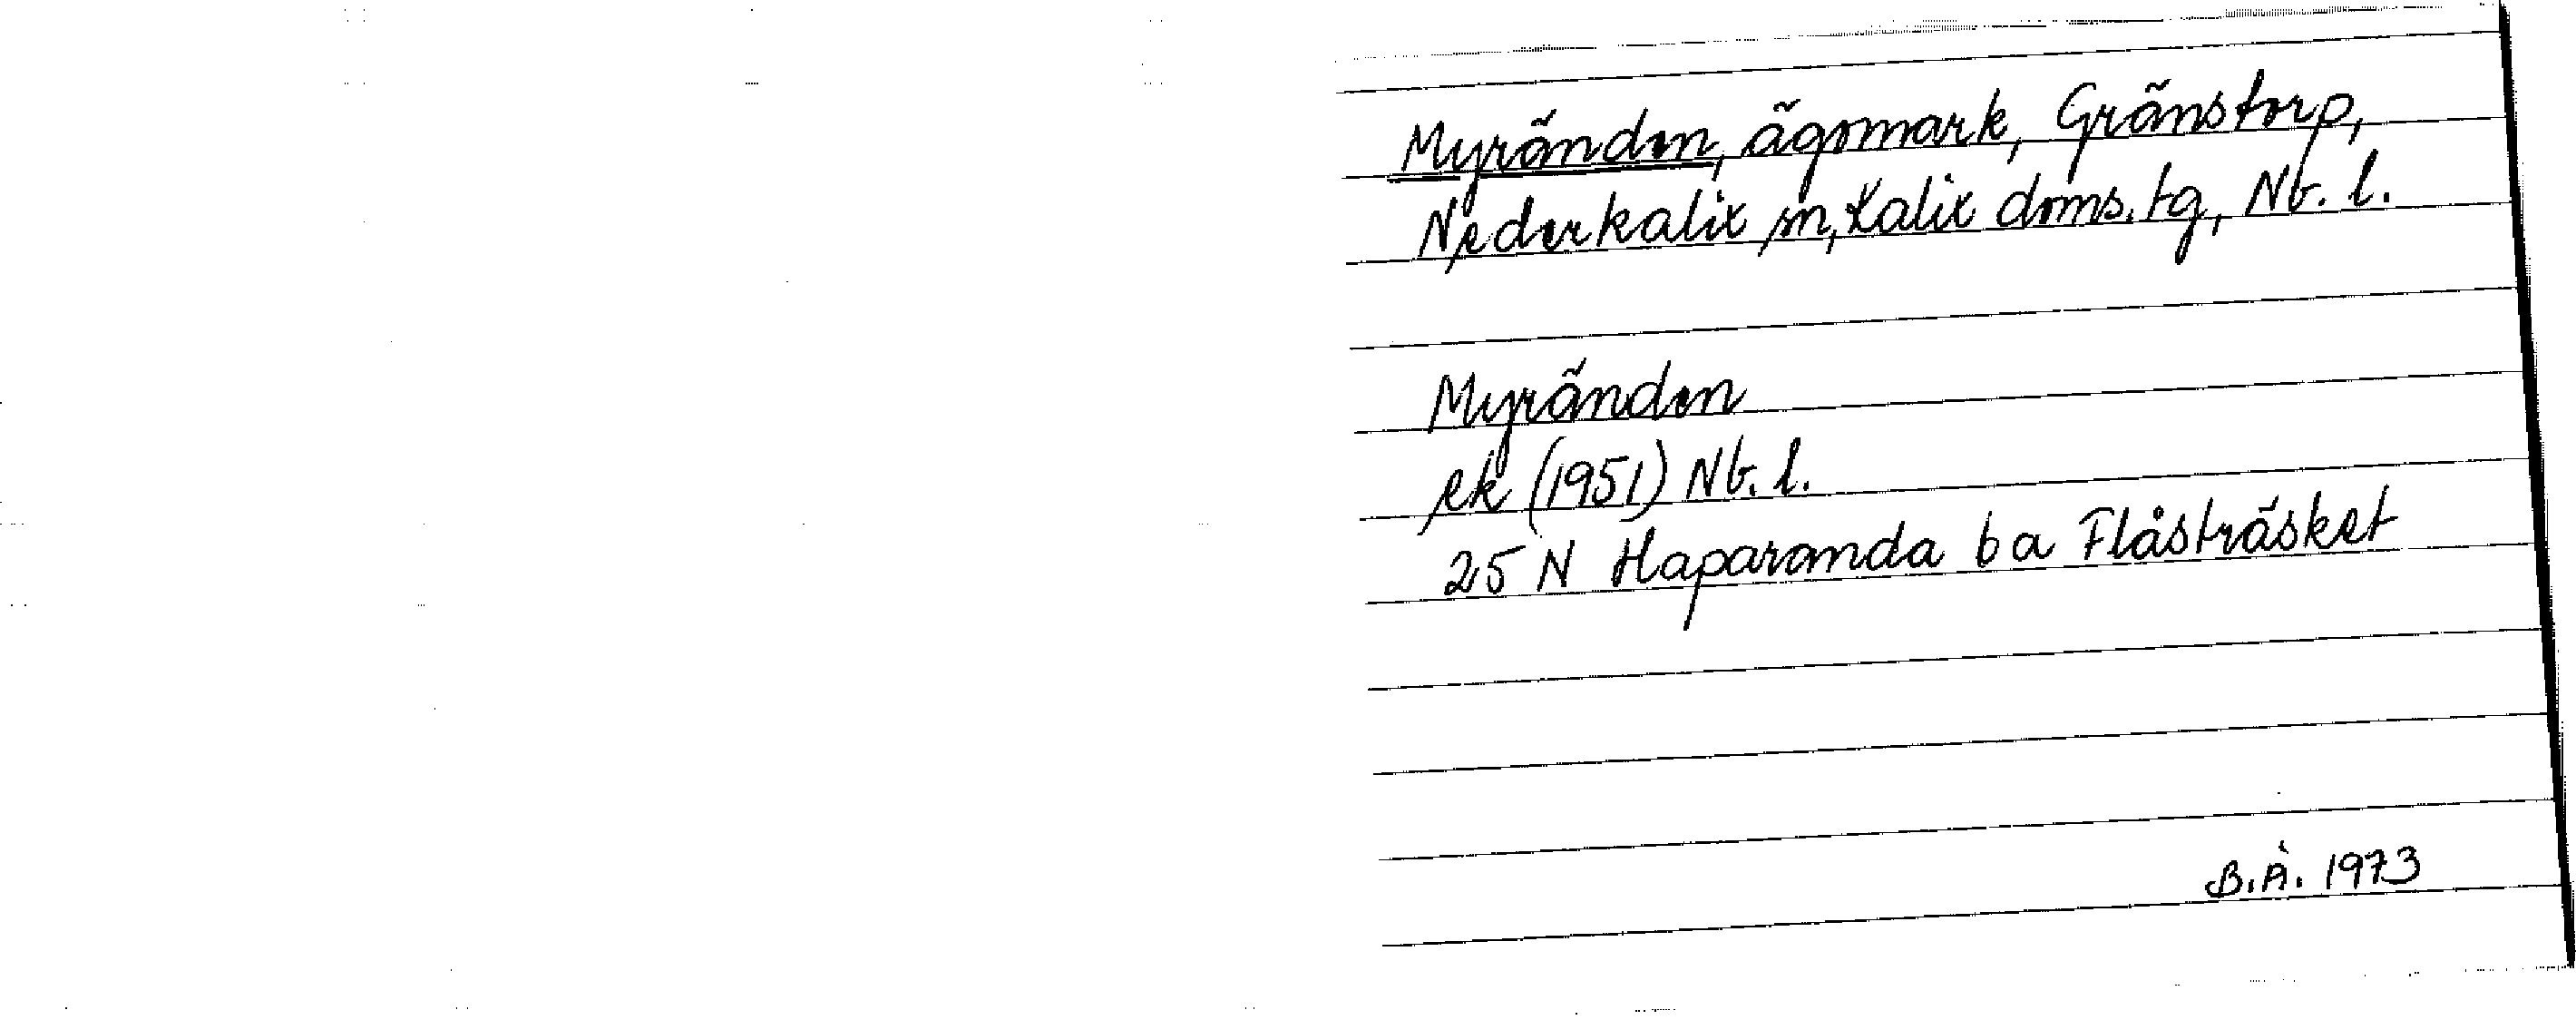 Myränden, ägomark, Gränstorp,
Nederkalix sn, Kalix doms. tg, Nb. l.
Myränden
ek (1951) Nb. l.
25 N Haparanda 6 a Flåsträsket
B.Å. 1973